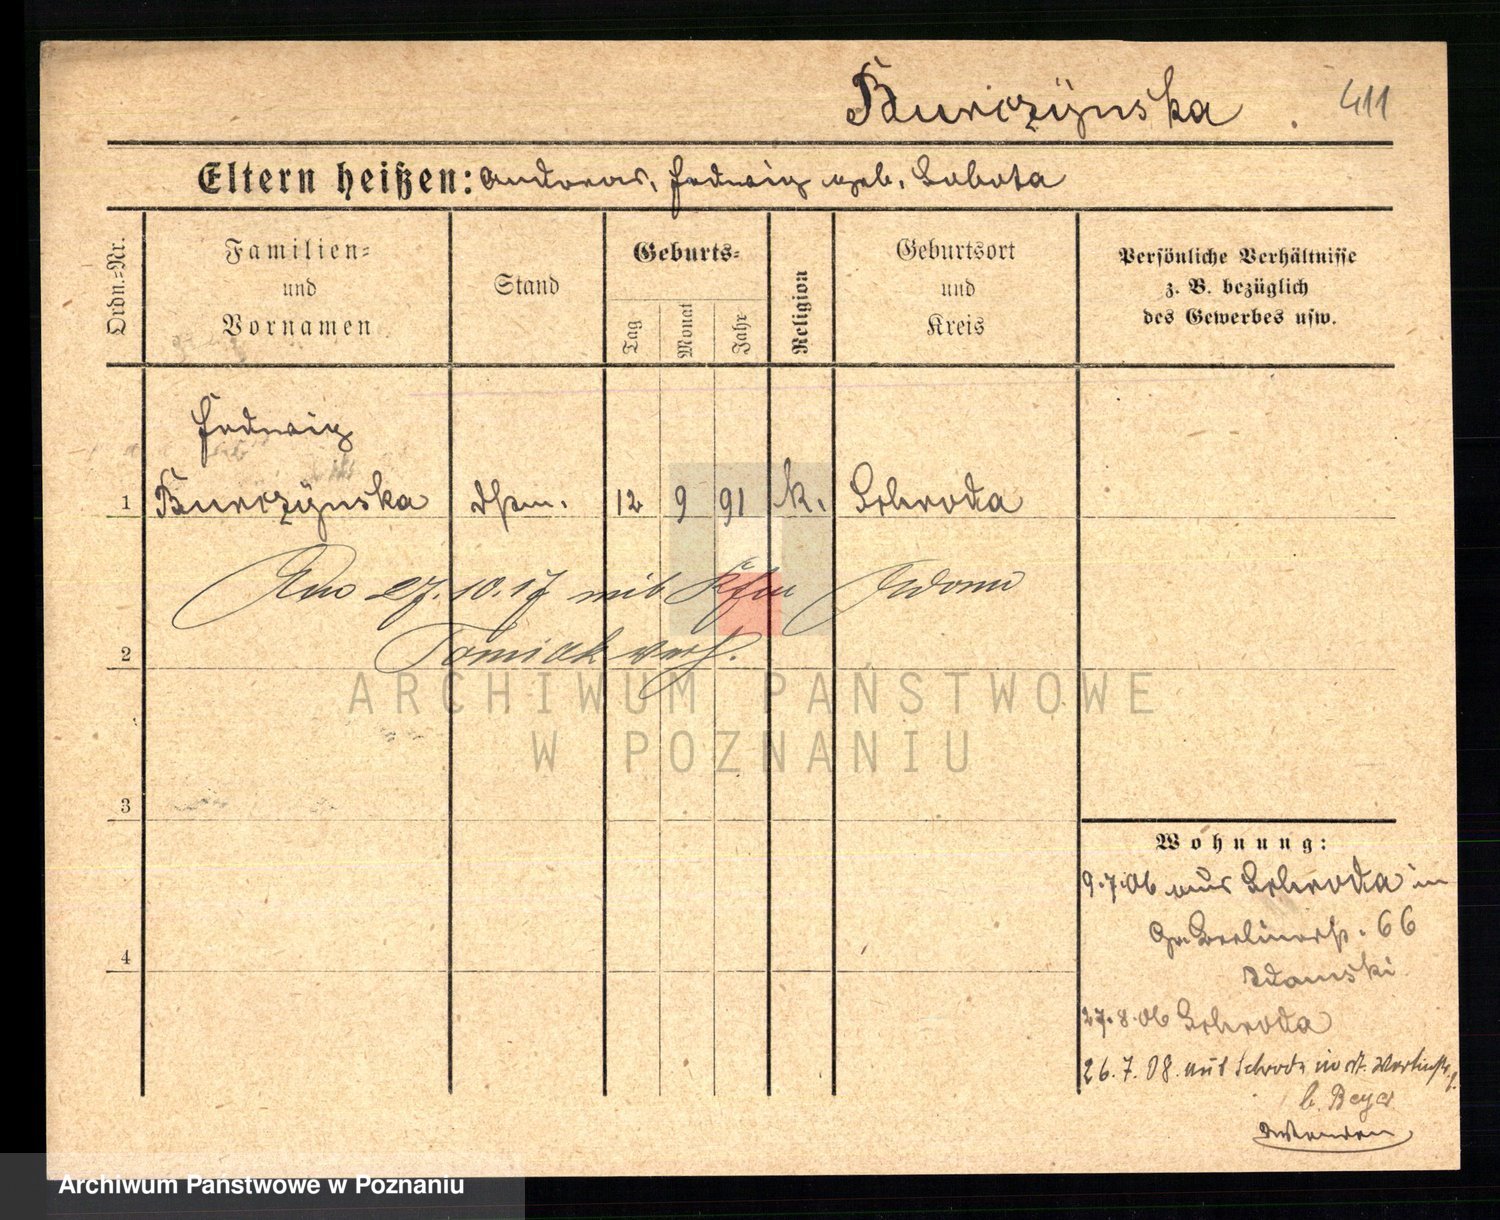 Burczÿnska. 411
Eltern heißen: Andreas, Hedwig geb. Sobota
Ordn.=Nr.
Familien=
und
Vornamen
Stand
Geburts=
Tag
Monat
Jahr
Religion
Geburtsort
und
Kreis
Persönliche Verhältnisse
z. B. bezüglich
des Gewerbes usw.
Hedwig
1 Burczÿnska dhm. 12 9 91 k. Schroda
27.10.17 mit
2 Tomiak verh.
ARCHIWUM PAŃSTWOWE
W POZNANIU
3
Wohnung:
9.7.06 aus Schroda in
Berlinerstr. 66
4
Adamski
27.8.06 Schroda
26.7.08. aus Schroda in St. Martinstr.
b. Beyer
wenden
Archiwum Państwowe w Poznaniu